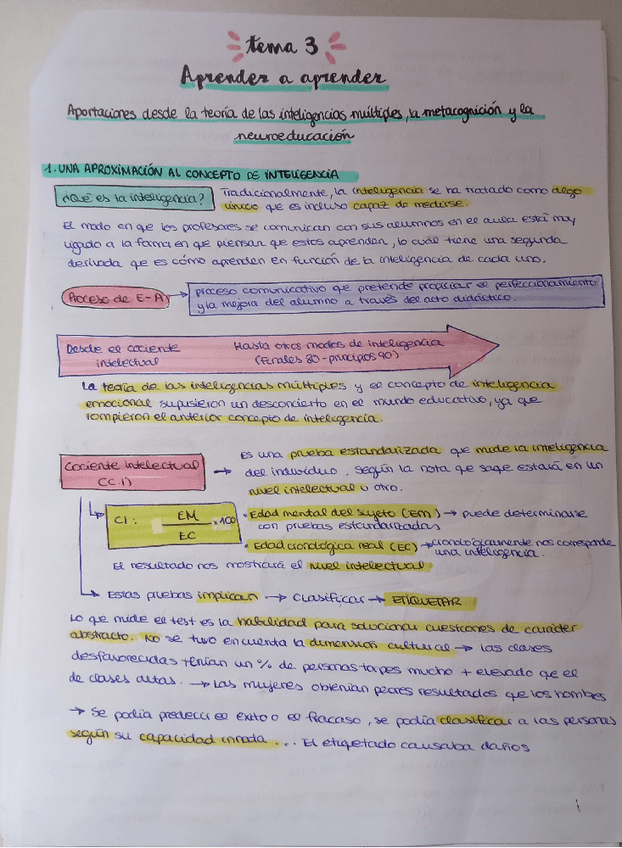 tema 3
Aprender a aprender
Aportaciones desde la teoría de las inteligencias múltiples, la metacognición y la
neuroeducación
1. UNA APROXIMACIÓN AL CONCEPTO DE INTELIGENCIA
¿Qué es la inteligencia? Tradicionalmente, la inteligencia se ha tratado como algo
único que es incluso capaz de medirse.
El modo en que los profesores se comunican con sus alumnos en el aula está muy
ligado a la forma en que piensan que estos aprenden, lo cual tiene una segunda
derivada que es cómo aprenden en función de la inteligencia de cada uno.
Proceso de E-A → proceso comunicativo que pretende propiciar el perfeccionamiento
y la mejora del alumno a través del acto didáctico.
Desde el cociente Hasta otros modos de inteligencia
intelectual (finales 80 - principios 90)
La teoría de las inteligencias múltiples y el concepto de inteligencia
emocional supusieron un desconcierto en el mundo educativo, ya que
rompieron el anterior concepto de inteligencia.
Cociente intelectual → Es una prueba estandarizada que mide la inteligencia
(C.i) del individuo. Según la nota que saque estará en un
nivel intelectual u otro.
CI: EM / EC x100 · Edad mental del sujeto (EM) → puede determinarse
con pruebas estandarizadas
· Edad cronológica real (EC) → cronológicamente nos corresponde
una inteligencia.
El resultado nos mostrará el nivel intelectual
Estas pruebas implican → clasificar → ETIQUETAR
Lo que mide el test es la habilidad para solucionar cuestiones de carácter
abstracto. No se tuvo en cuenta la dimensión cultural → las clases
desfavorecidas tenían un % de personas torpes mucho + elevado que el
de clases altas. → Las mujeres obtenían peores resultados que los hombres
→ Se podía predecir el éxito o el fracaso, se podía clasificar a las personas
según su capacidad innata... El etiquetado causaba daños